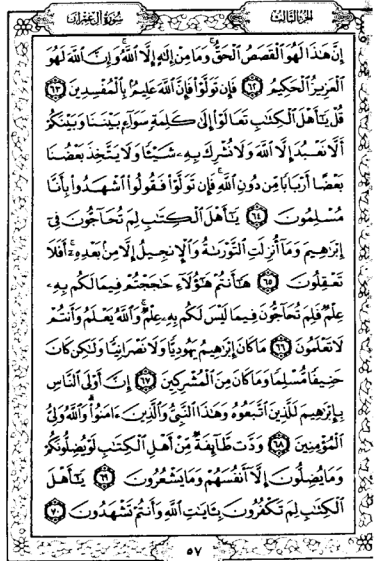 سُورَةُ آلِ عِمْرَانَ
الجُزْءُ الثَّالِثُ
إِنَّ هَٰذَا لَهُوَ ٱلْقَصَصُ ٱلْحَقُّ ۚ وَمَا مِنْ إِلَٰهٍ إِلَّا ٱللَّهُ ۚ وَإِنَّ ٱللَّهَ لَهُوَ
ٱلْعَزِيزُ ٱلْحَكِيمُ ٦٢ فَإِن تَوَلَّوْا۟ فَإِنَّ ٱللَّهَ عَلِيمٌۢ بِٱلْمُفْسِدِينَ ٦٣
قُلْ يَٰٓأَهْلَ ٱلْكِتَٰبِ تَعَالَوْا۟ إِلَىٰ كَلِمَةٍ سَوَآءٍۭ بَيْنَنَا وَبَيْنَكُمْ
أَلَّا نَعْبُدَ إِلَّا ٱللَّهَ وَلَا نُشْرِكَ بِهِۦ شَيْـًٔا وَلَا يَتَّخِذَ بَعْضُنَا
بَعْضًا أَرْبَابًا مِّن دُونِ ٱللَّهِ ۚ فَإِن تَوَلَّوْا۟ فَقُولُوا۟ ٱشْهَدُوا۟ بِأَنَّا
مُسْلِمُونَ ٦٤ يَٰٓأَهْلَ ٱلْكِتَٰبِ لِمَ تُحَآجُّونَ فِىٓ
إِبْرَٰهِيمَ وَمَآ أُنزِلَتِ ٱلتَّوْرَىٰةُ وَٱلْإِنجِيلُ إِلَّا مِنۢ بَعْدِهِۦٓ ۚ أَفَلَا
تَعْقِلُونَ ٦٥ هَٰٓأَنتُمْ هَٰٓؤُلَآءِ حَٰجَجْتُمْ فِيمَا لَكُم بِهِۦ
عِلْمٌ فَلِمَ تُحَآجُّونَ فِيمَا لَيْسَ لَكُم بِهِۦ عِلْمٌ ۚ وَٱللَّهُ يَعْلَمُ وَأَنتُمْ
لَا تَعْلَمُونَ ٦٦ مَا كَانَ إِبْرَٰهِيمُ يَهُودِيًّا وَلَا نَصْرَانِيًّا وَلَٰكِن كَانَ
حَنِيفًا مُّسْلِمًا وَمَا كَانَ مِنَ ٱلْمُشْرِكِينَ ٦٧ إِنَّ أَوْلَى ٱلنَّاسِ
بِإِبْرَٰهِيمَ لَلَّذِينَ ٱتَّبَعُوهُ وَهَٰذَا ٱلنَّبِىُّ وَٱلَّذِينَ ءَامَنُوا۟ ۗ وَٱللَّهُ وَلِىُّ
ٱلْمُؤْمِنِينَ ٦٨ وَدَّت طَّآئِفَةٌ مِّنْ أَهْلِ ٱلْكِتَٰبِ لَوْ يُضِلُّونَكُمْ
وَمَا يُضِلُّونَ إِلَّآ أَنفُسَهُمْ وَمَا يَشْعُرُونَ ٦٩ يَٰٓأَهْلَ
ٱلْكِتَٰبِ لِمَ تَكْفُرُونَ بِـَٔايَٰتِ ٱللَّهِ وَأَنتُمْ تَشْهَدُونَ ٧٠
٥٧